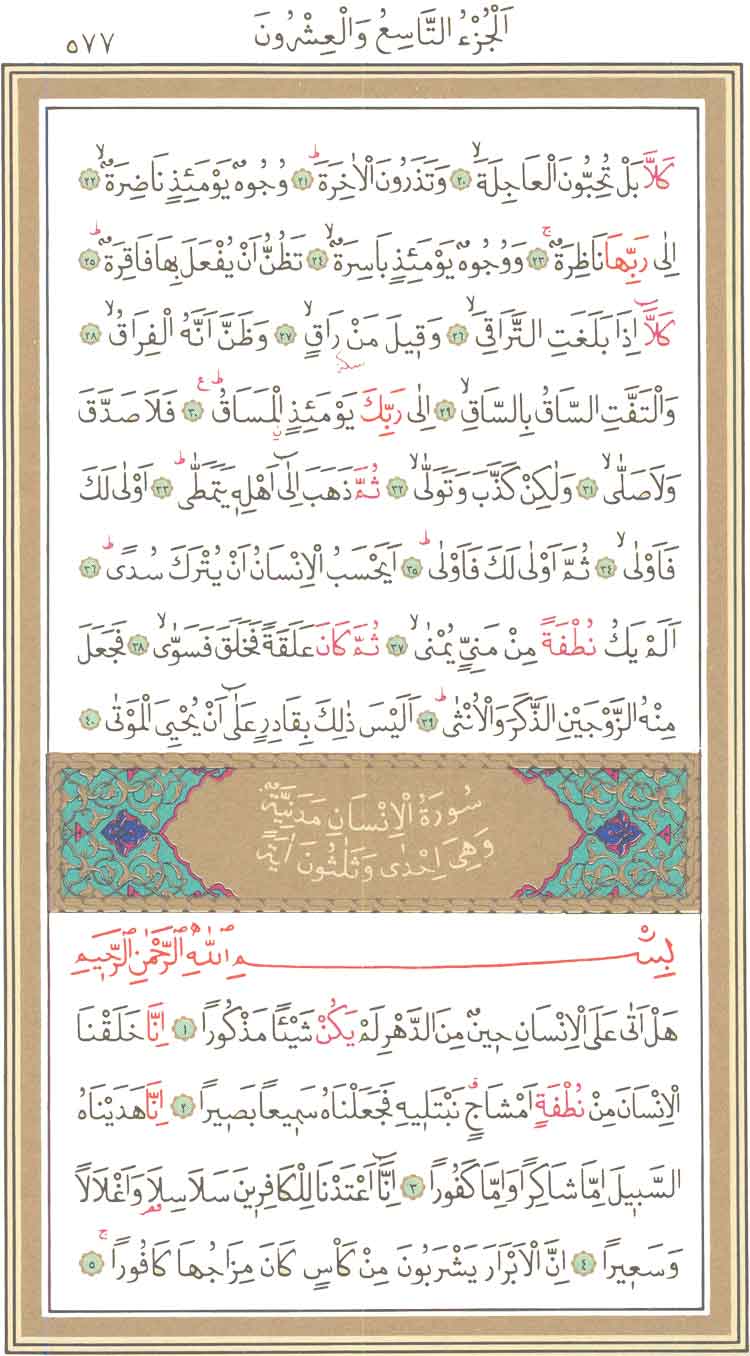 اَلْجُزْءُ التَّاسِعُ وَالْعِشْرُونَ ٥٧٧
كَلَّا بَلْ تُحِبُّونَ الْعَاجِلَةَۙ ﴿٢٠﴾ وَتَذَرُونَ الْاٰخِرَةَۜ ﴿٢١﴾ وُجُوهٌ يَوْمَئِذٍ نَاضِرَةٌۙ ﴿٢٢﴾
اِلٰى رَبِّهَا نَاظِرَةٌۚ ﴿٢٣﴾ وَوُجُوهٌ يَوْمَئِذٍ بَاسِرَةٌۙ ﴿٢٤﴾ تَظُنُّ اَنْ يُفْعَلَ بِهَا فَاقِرَةٌۜ ﴿٢٥﴾
كَلَّٓا اِذَا بَلَغَتِ التَّرَاقِيَۙ ﴿٢٦﴾ وَقٖيلَ مَنْ رَاقٍۙ ﴿٢٧﴾ وَظَنَّ اَنَّهُ الْفِرَاقُۙ ﴿٢٨﴾
سكته
وَالْتَفَّتِ السَّاقُ بِالسَّاقِۙ ﴿٢٩﴾ اِلٰى رَبِّكَ يَوْمَئِذٍ الْمَسَاقُۜ ع ﴿٣٠﴾ فَلَا صَدَّقَ
وَلَا صَلّٰىۙ ﴿٣١﴾ وَلٰكِنْ كَذَّبَ وَتَوَلّٰىۙ ﴿٣٢﴾ ثُمَّ ذَهَبَ اِلٰٓى اَهْلِهٖ يَتَمَطّٰىۜ ﴿٣٣﴾ اَوْلٰى لَكَ
فَاَوْلٰىۙ ﴿٣٤﴾ ثُمَّ اَوْلٰى لَكَ فَاَوْلٰىۜ ﴿٣٥﴾ اَيَحْسَبُ الْاِنْسَانُ اَنْ يُتْرَكَ سُدًىۜ ﴿٣٦﴾
اَلَمْ يَكُ نُطْفَةً مِنْ مَنِيٍّ يُمْنٰىۙ ﴿٣٧﴾ ثُمَّ كَانَ عَلَقَةً فَخَلَقَ فَسَوّٰىۙ ﴿٣٨﴾ فَجَعَلَ
مِنْهُ الزَّوْجَيْنِ الذَّكَرَ وَالْاُنْثٰىۜ ﴿٣٩﴾ اَلَيْسَ ذٰلِكَ بِقَادِرٍ عَلٰٓى اَنْ يُحْيِيَ الْمَوْتٰى ﴿٤٠﴾
سُورَةُ الْاِنْسَانِ مَدَنِيَّةٌ
وَهِيَ اِحْدٰى وَثَلٰثُونَ اٰيَةً
بِسْمِ اللّٰهِ الرَّحْمٰنِ الرَّحٖيمِ
هَلْ اَتٰى عَلَى الْاِنْسَانِ حٖينٌ مِنَ الدَّهْرِ لَمْ يَكُنْ شَيْـًٔا مَذْكُورًا ﴿١﴾ اِنَّا خَلَقْنَا
الْاِنْسَانَ مِنْ نُطْفَةٍ اَمْشَاجٍۗ نَبْتَلٖيهِ فَجَعَلْنَاهُ سَمٖيعًا بَصٖيرًا ﴿٢﴾ اِنَّا هَدَيْنَاهُ
السَّبٖيلَ اِمَّا شَاكِرًا وَاِمَّا كَفُورًا ﴿٣﴾ اِنَّٓا اَعْتَدْنَا لِلْكَافِرٖينَ سَلَاسِلَا وَاَغْلَالًا
وَسَعٖيرًا ﴿٤﴾ اِنَّ الْاَبْرَارَ يَشْرَبُونَ مِنْ كَأْسٍ كَانَ مِزَاجُهَا كَافُورًاۚ ﴿٥﴾